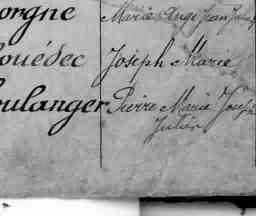 orgne Marie Ange Jean
ouédec Joseph Marie
oulanger Pierre Marie Joseph
Julien